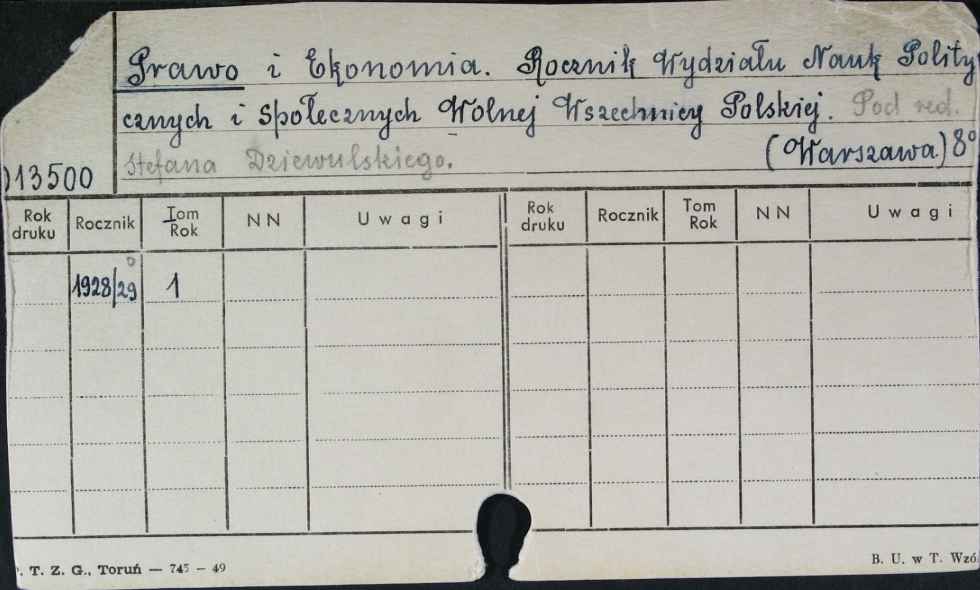 Prawo i Ekonomia. Rocznik Wydziału Nauk Polity
cznych i Społecznych Wolnej Wszechnicy Polskiej. Pod red.
Stefana Dziewulskiego. (Warszawa.) 8°
013500
Rok druku Rocznik Tom Rok NN Uwagi Rok druku Rocznik Tom Rok NN Uwagi
1928/29 1
P. T. Z. G., Toruń — 745 — 49 B. U. w T. Wzó